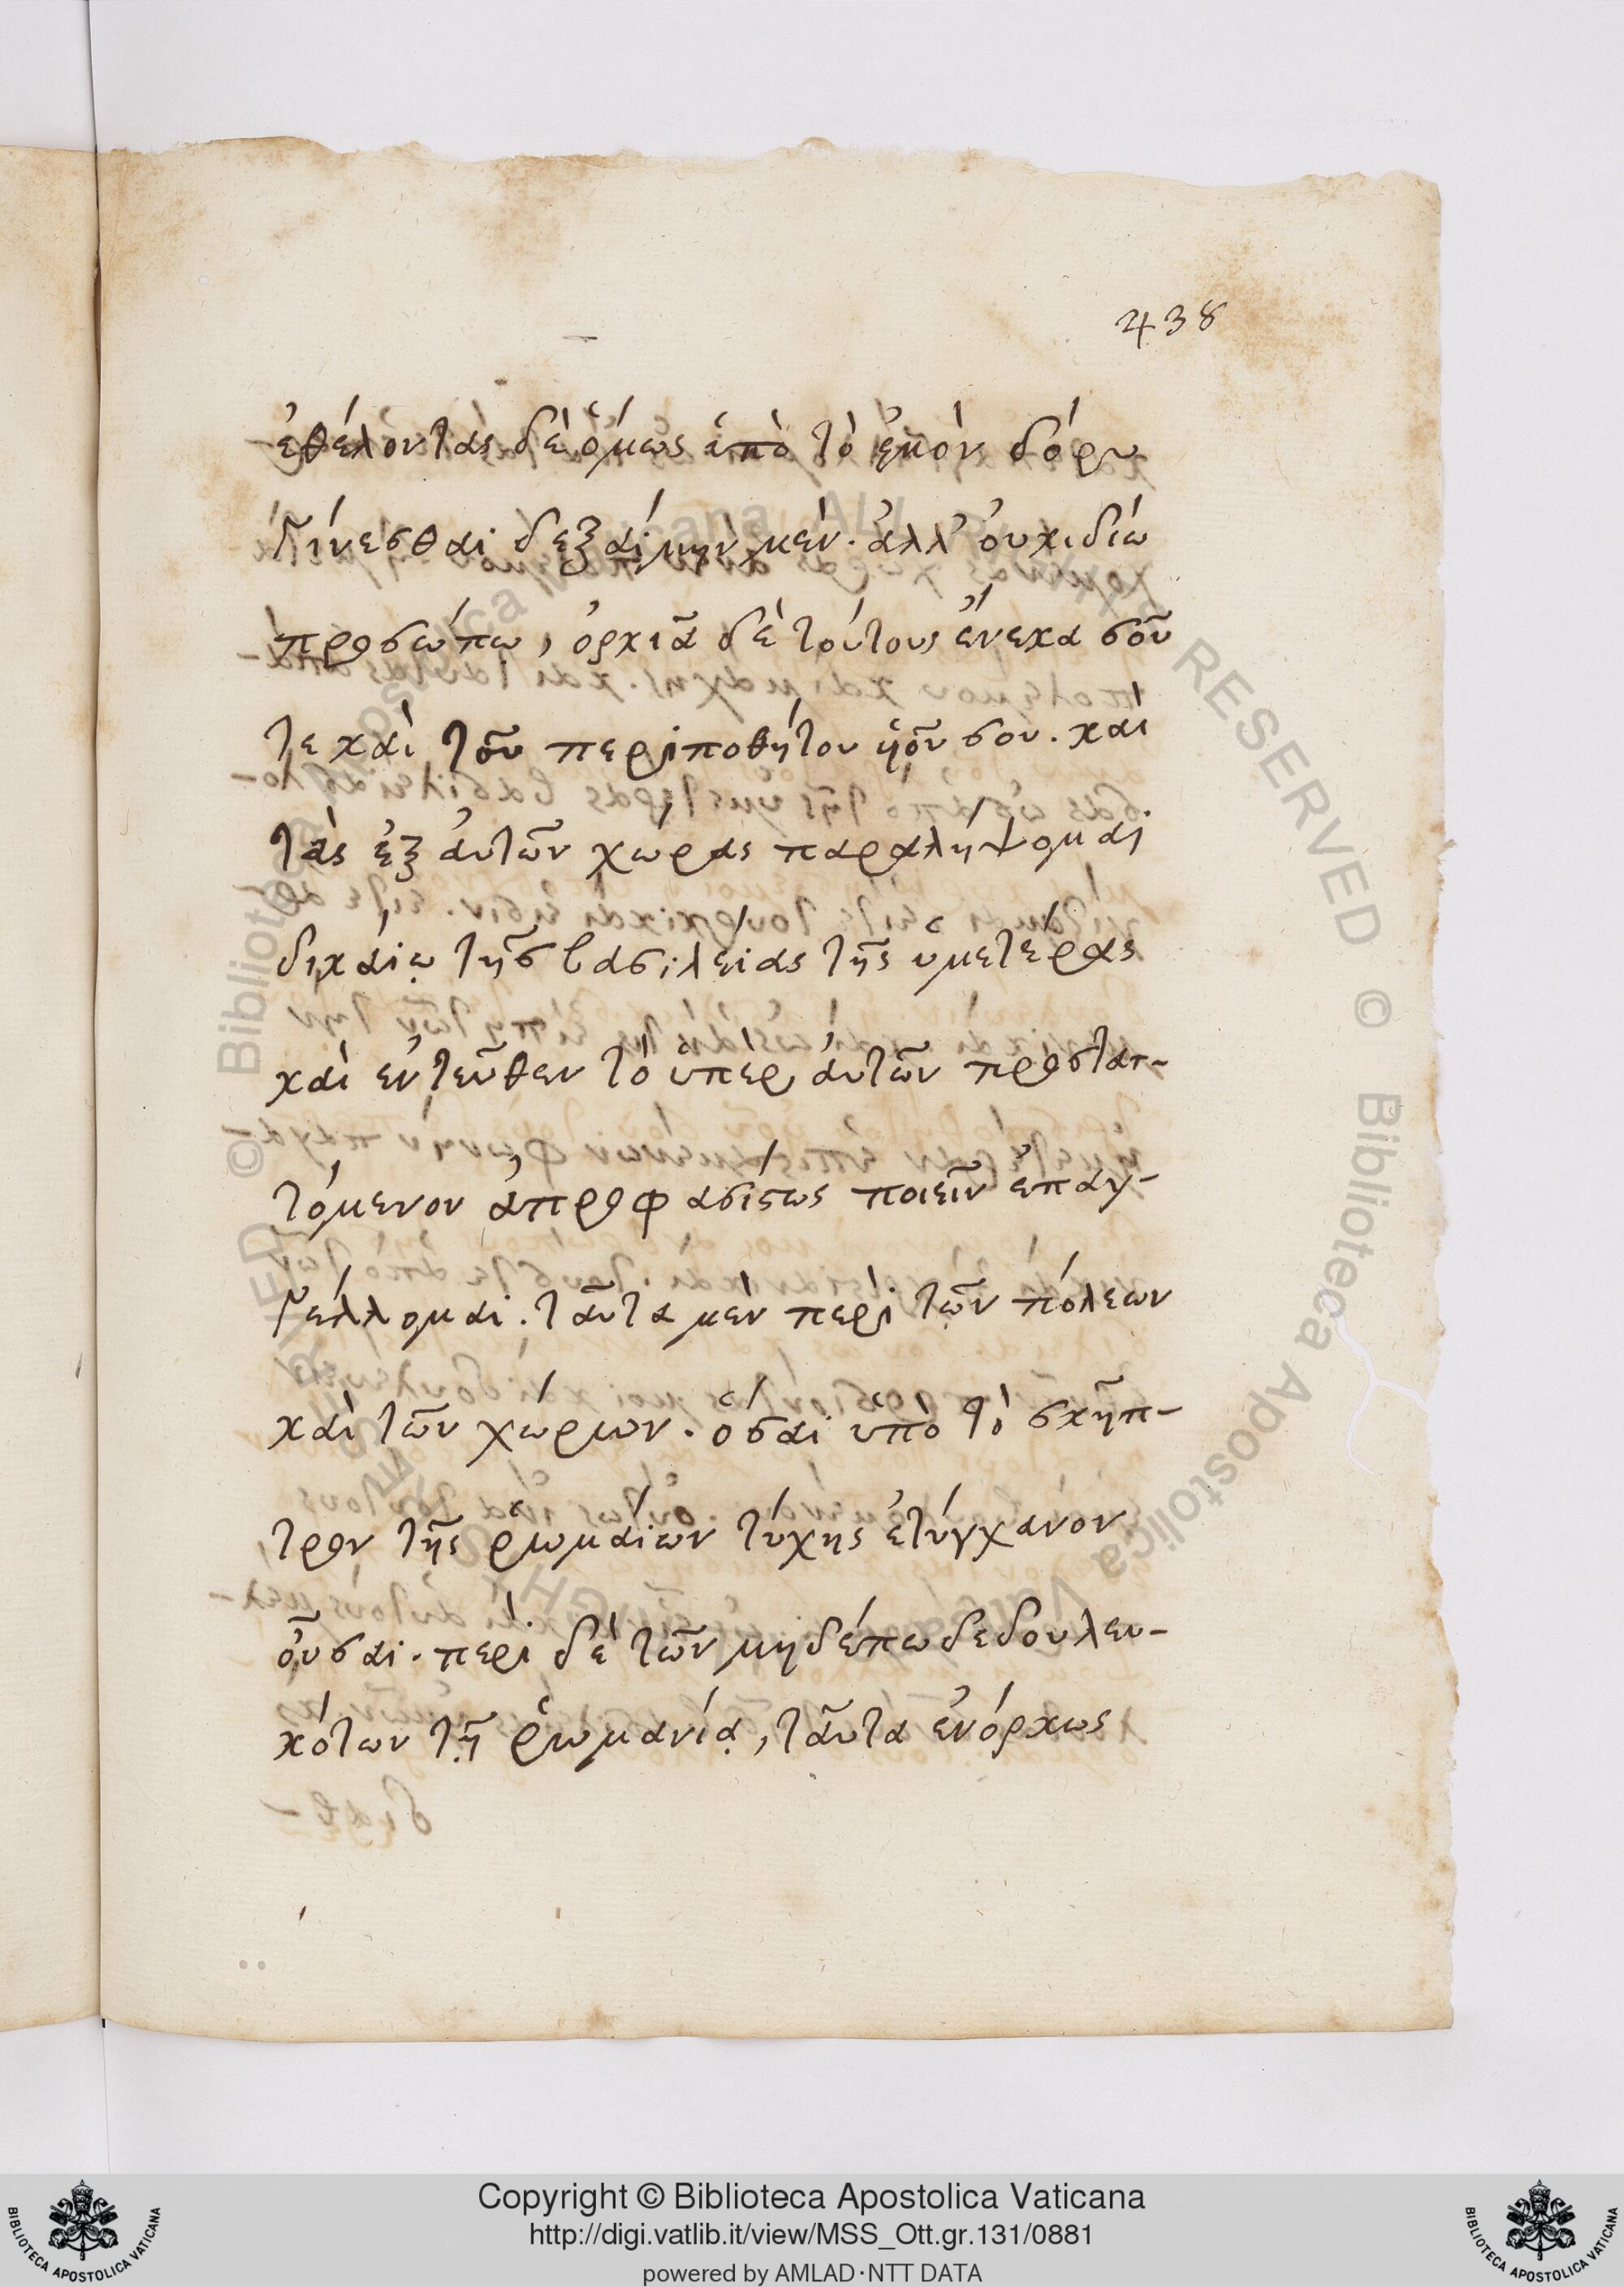 438
ἐθέλοντας δὲ ὅμως ἀπὸ τὸ ἐμὸν δόρυ
γίνεσθαι δεξαίμην μὲν. ἀλλ' ὀυχ ιδίω
προσώπω, ὁρκιῶ δὲ τούτους ἕνεκα σοῦ
τε καὶ τοῦ περιποθήτου ὑιοῦ σου. καὶ
τὰς ἐξ ἀυτῶν χώρας παραλήψομαι
δικάιῳ τῆς βασιλείας τῆς ὑμετέρας
καὶ εντεῦθεν τὸ ὑπὲρ ἀυτῶν προστατ-
τόμενον ἀπροφασίστως ποιεῖν ἐπαγ-
γέλλομαι. τᾶυτα μὲν περὶ τῶν πόλεων
καὶ τῶν χώρων. ὅσαι ὑπὸ τὸ σκῆπ-
τρον τῆς ῥωμαίων τύχης ἐτύγχανον
ὀῦσαι. περὶ δὲ τῶν μηδέπω δεδουλευ-
κότων τῇ ῥωμανίᾳ, τᾶυτα ἐνόρκως
Copyright © Biblioteca Apostolica Vaticana
http://digi.vatlib.it/view/MSS_Ott.gr.131/0881
powered by AMLAD·NTT DATA
BIBLIOTECA APOSTOLICA VATICANA
BIBLIOTECA APOSTOLICA VATICANA